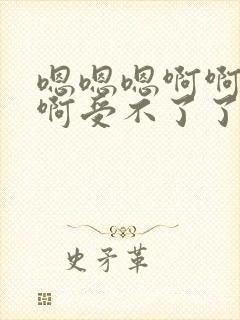 嗯嗯嗯啊啊
啊受不了了
史矛革